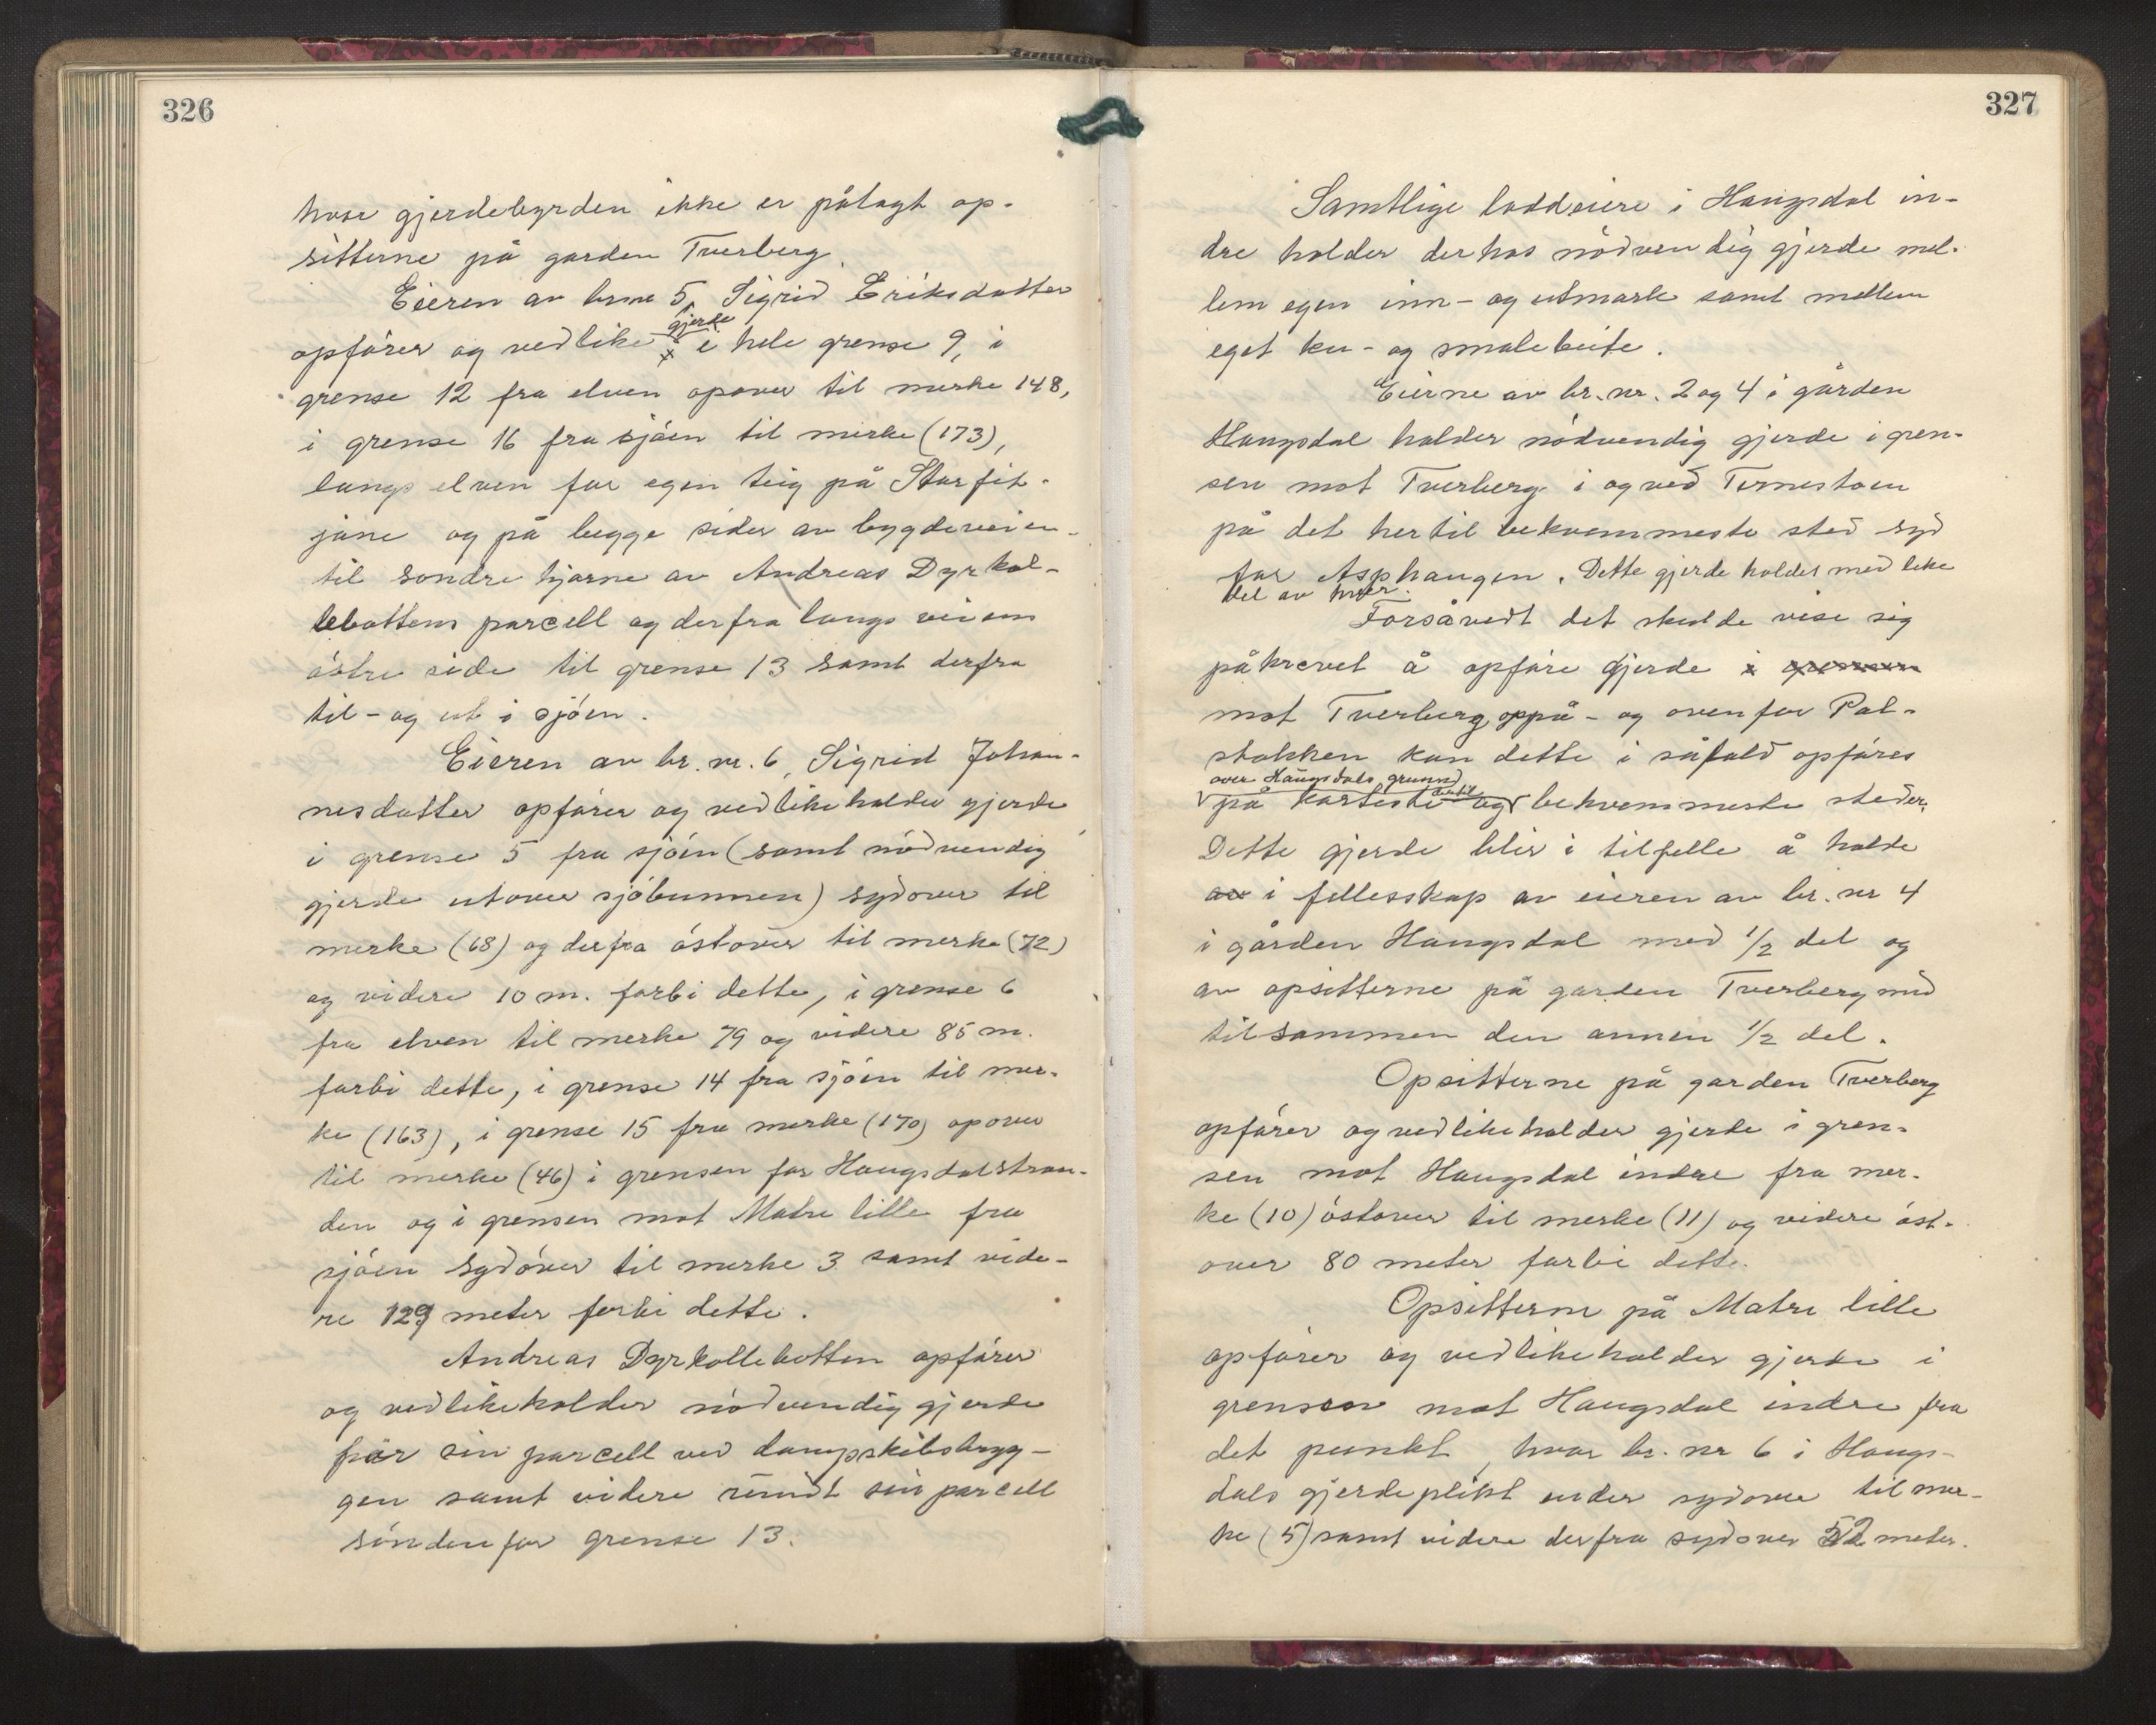 326
hvor gjerdebyrden ikke er pålagt op-
sitterne på garden Tverberg.
Eieren av brnr 5, Sigrid Eriksdatter
gjerde
opförer og vedlike i hele grense 9, i
grense 12 fra elven opover til merke 148,
i grense 16 fra sjöen til merke (173),
langs elven for egen teig på Storfit-
jane og på begge sider av bygdeveien
til söndre hjörne av Andreas Dyrkol-
lebottens parcell og derfra langs veiens
östre side til grense 13 samt derfra
til- og ut i sjöen.
Eieren av br. nr. 6, Sigrid Johan-
nesdatter opförer og vedlikeholder gjerde
i grense 5 fra sjöen (samt nödvendig
gjerde utover sjöbunnen) sydover til
merke (68) og derfra östover til merke (72)
og videre 10 m. forbi dette, i grense 6
fra elven til merke 79 og videre 85 m.
forbi dette, i grense 14 fra sjöen til mer-
ke (163), i grense 15 fra merke (170) opover
til merke (46) i grensen for Haugsdalstran-
den og i grensen mot Matre lille fra
sjöen sydöver til merke 3 samt vide-
re 129 meter forbi dette.
Andreas Dyrkollebotten opförer
og vedlikeholder nödvendig gjerde
för sin parcell ved dampskibsbryg-
gen samt videre rundt sin parcell
sönden for grense 13.
327
Samtlige loddeiere i Haugsdal in-
dre holder derhos nödvendig gjerde mel-
lem egen inn- og utmark samt mellem
eget ku- og smalebeite.
Eierne av br. nr. 2 og 4 i gården
Haugsdal holder nödvendig gjerde i gren-
sen mot Tverberg i og ved Ternestöen
på det hertil bekvemmeste sted syd
for Asphaugen. Dette gjerde holdes med like
del av hver.
Forsåvedt det skulde vise sig
påkrevet å opföre gjerde i grensen
mot Tverberg oppå- og ovenfor Pal-
stokken kan dette i såfald opföres
over Haugsdals grunnd
på korteste og dertil bekvemmeste steder.
Dette gjerde blir i tilfelle å holde
av i fellesskap av eieren av br. nr 4
i gården Haugsdal med 1/2 del og
av opsitterne på garden Tverberg med
tilsammen den annen 1/2 del.
Opsitterne på garden Tverberg
opförer og vedlikeholder gjerde i gren-
sen mot Haugsdal indre fra mer-
ke (10) östover til merke (11) og videre öst-
over 80 meter forbi dette.
Opsitterne på Matre lille
opförer og vedlikeholder gjerde i
grensen mot Haugsdal indre fra
det punkt, hvor br. nr 6 i Haugs-
dals gjerdeplikt ender sydover til mer-
ke (5) samt videre derfra sydover 52 meter.